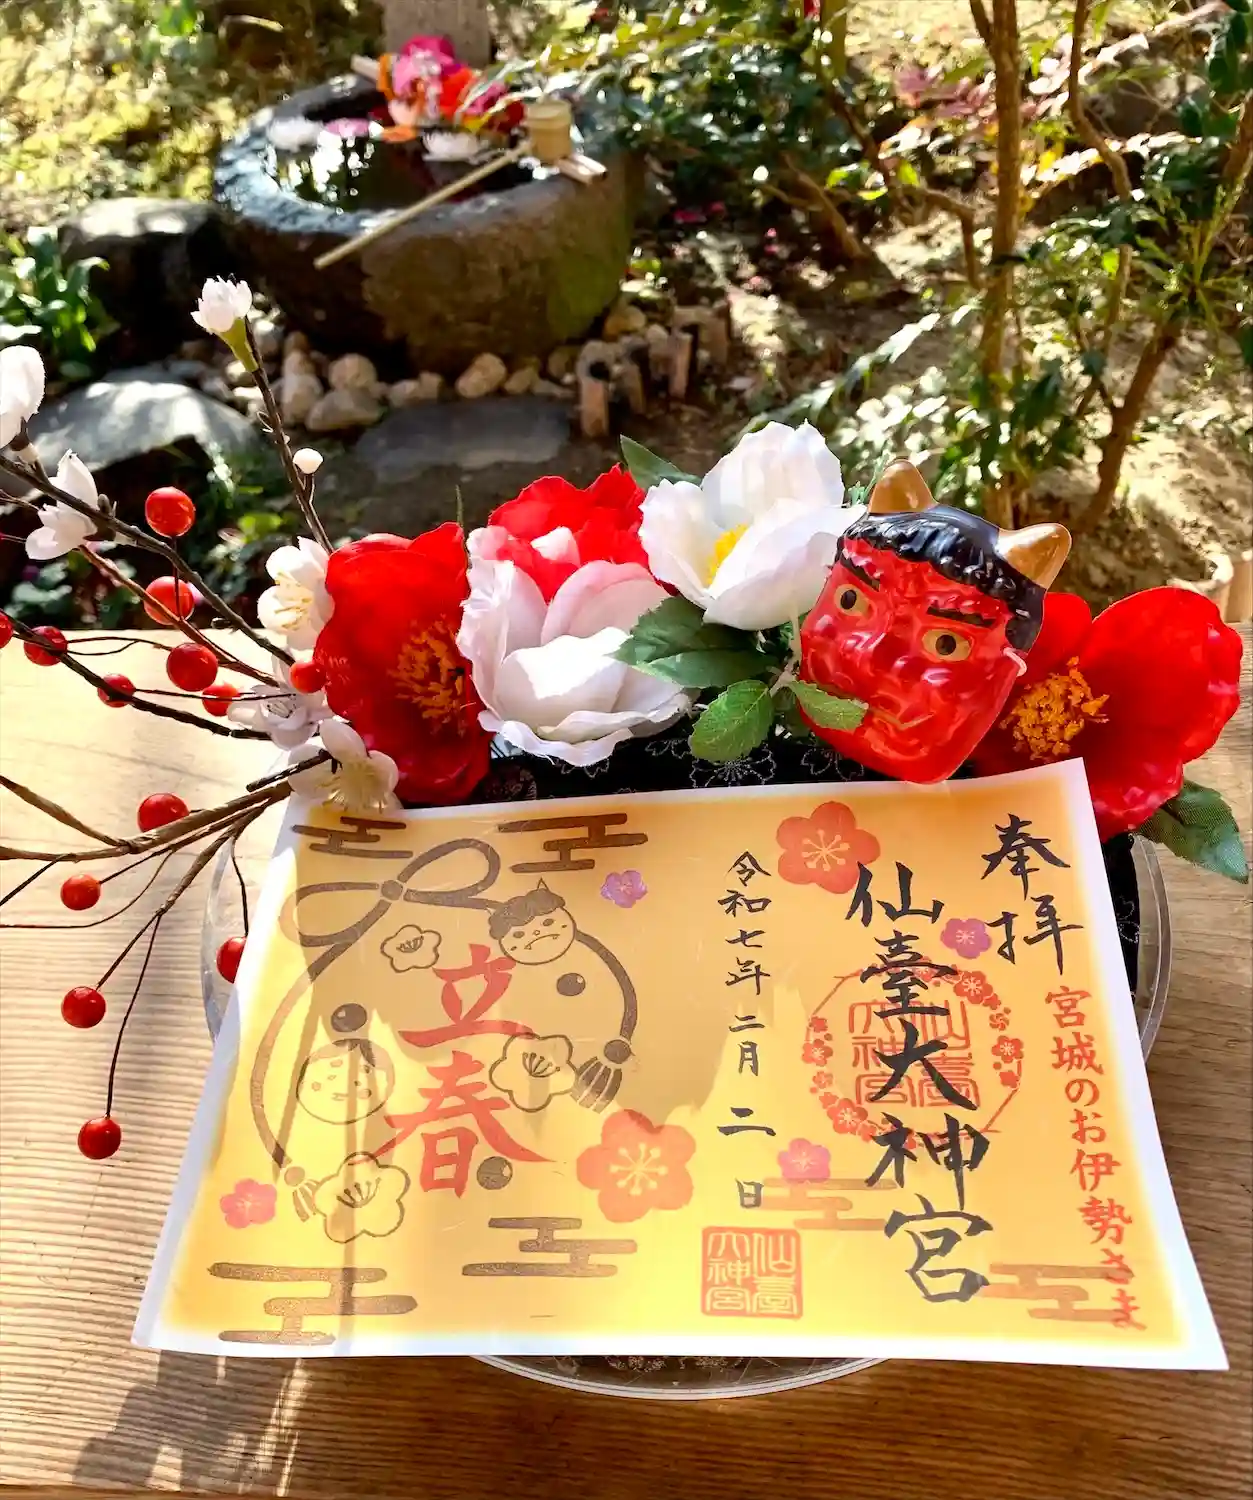 奉拝
宮城のお伊勢さま
仙臺大神宮
仙臺
大神宮
令和七年二月二日
仙臺
大神宮
立春